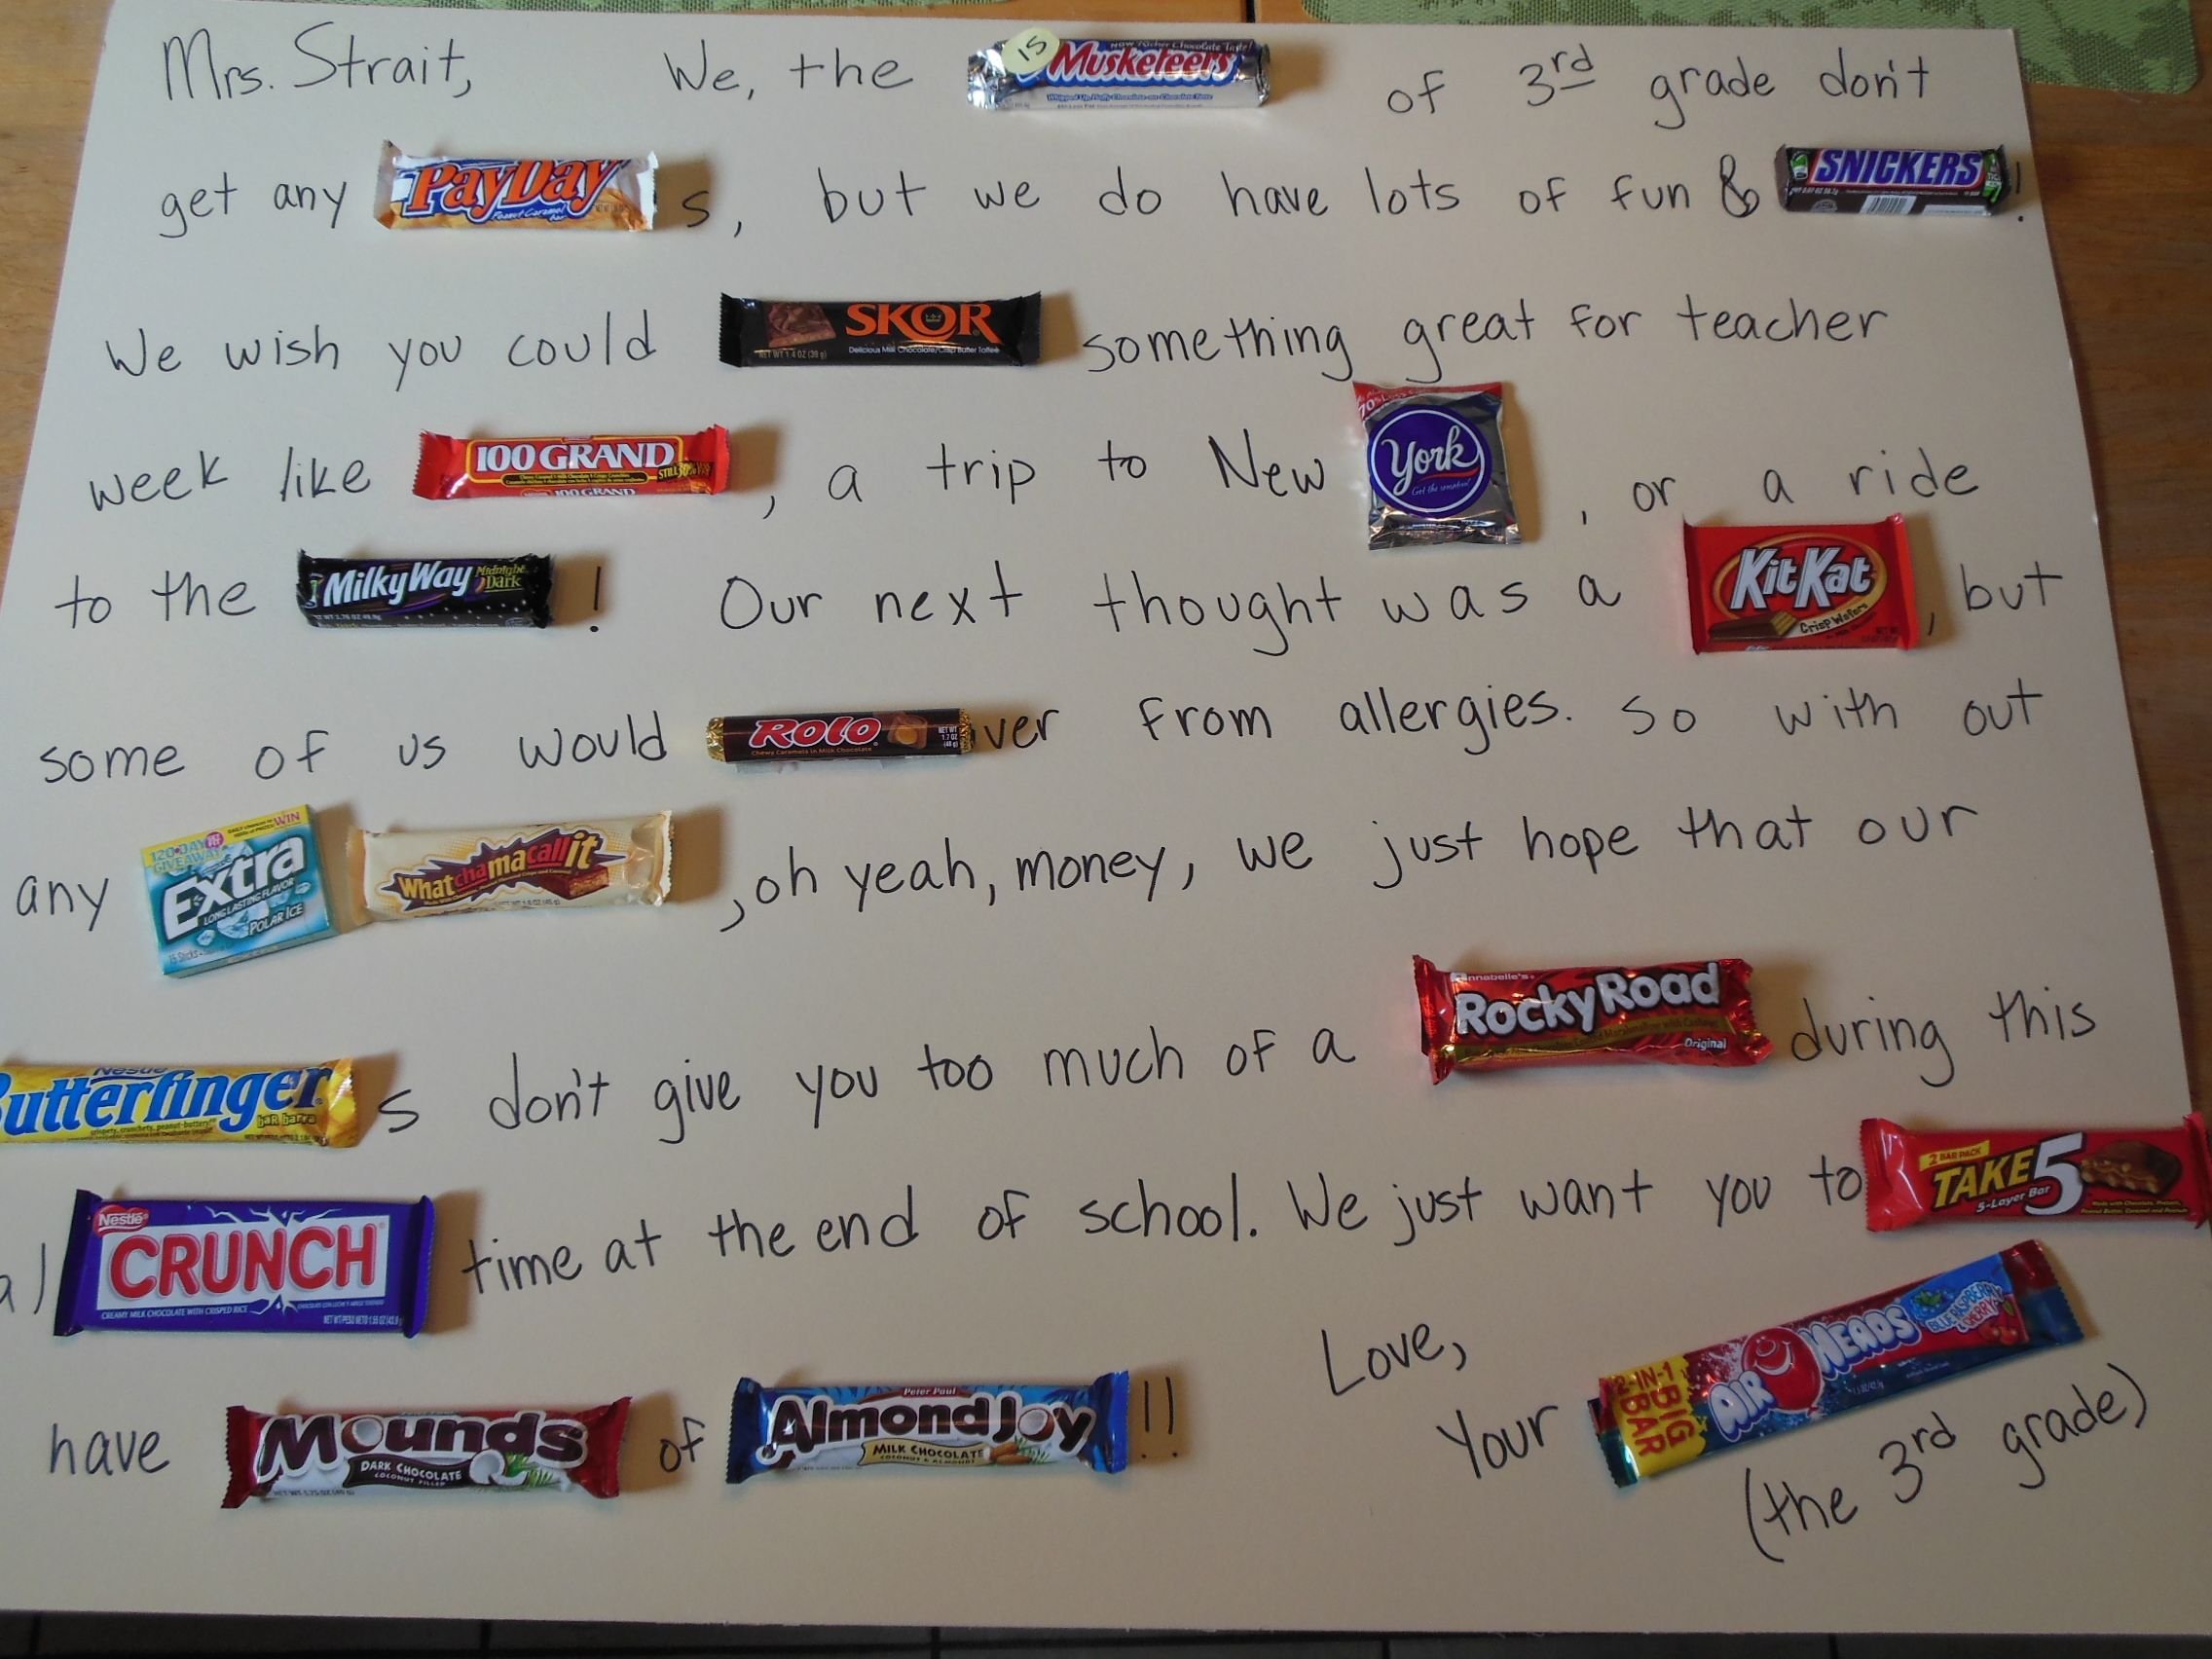 Mrs. Strait, We, the 15 Musketeers of 3rd grade don't
get any PayDay s, but we do have lots of fun & SNICKERS !
We wish you could SKOR something great for teacher
week like 100 GRAND , a trip to New York , or a ride
to the MilkyWay Midnight Dark ! Our next thought was a KitKat , but
some of us would ROLO ver from allergies. So with out
any Extra Whatchamacallit , oh yeah, money, we just hope that our
Butterfinger s don't give you too much of a Rocky Road during this
CRUNCH time at the end of school. We just want you to TAKE 5
have Mounds of Almond Joy !! Love,
Your AIRHEADS
(the 3rd grade)